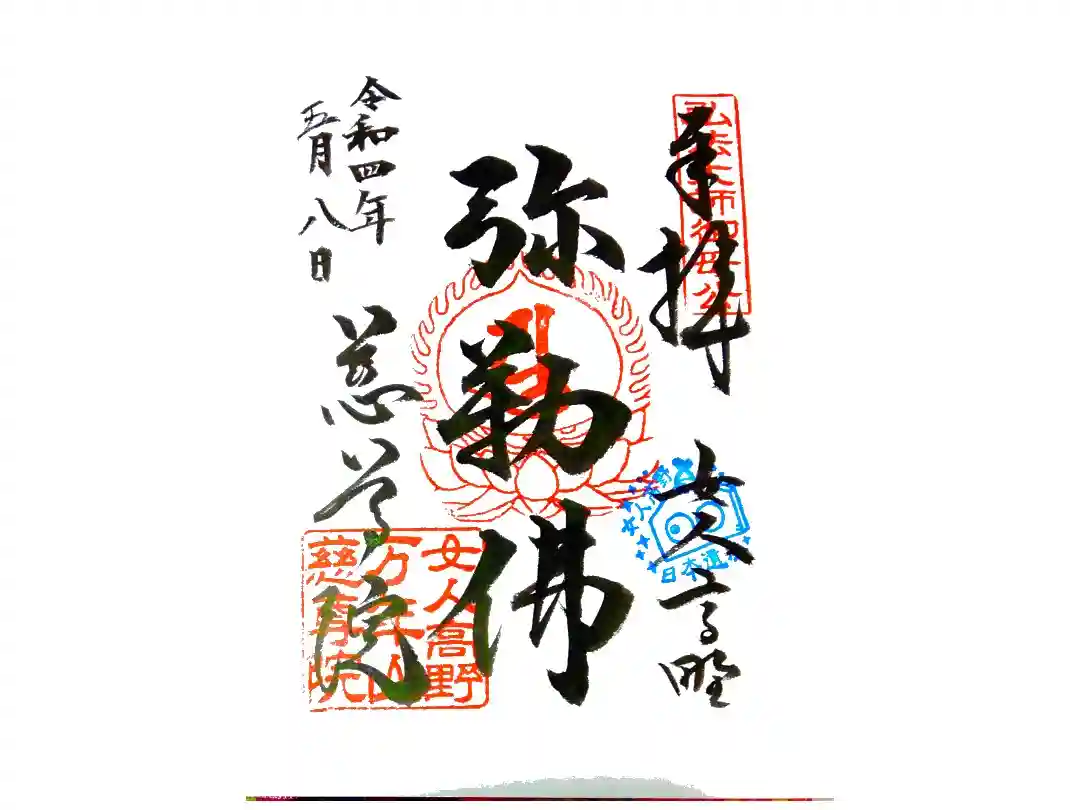 奉拝
女人高野
弘法大師御母公
女人高野
日本遺産
弥勒佛
令和四年
五月八日
慈尊院
女人高野
万年山
慈尊院